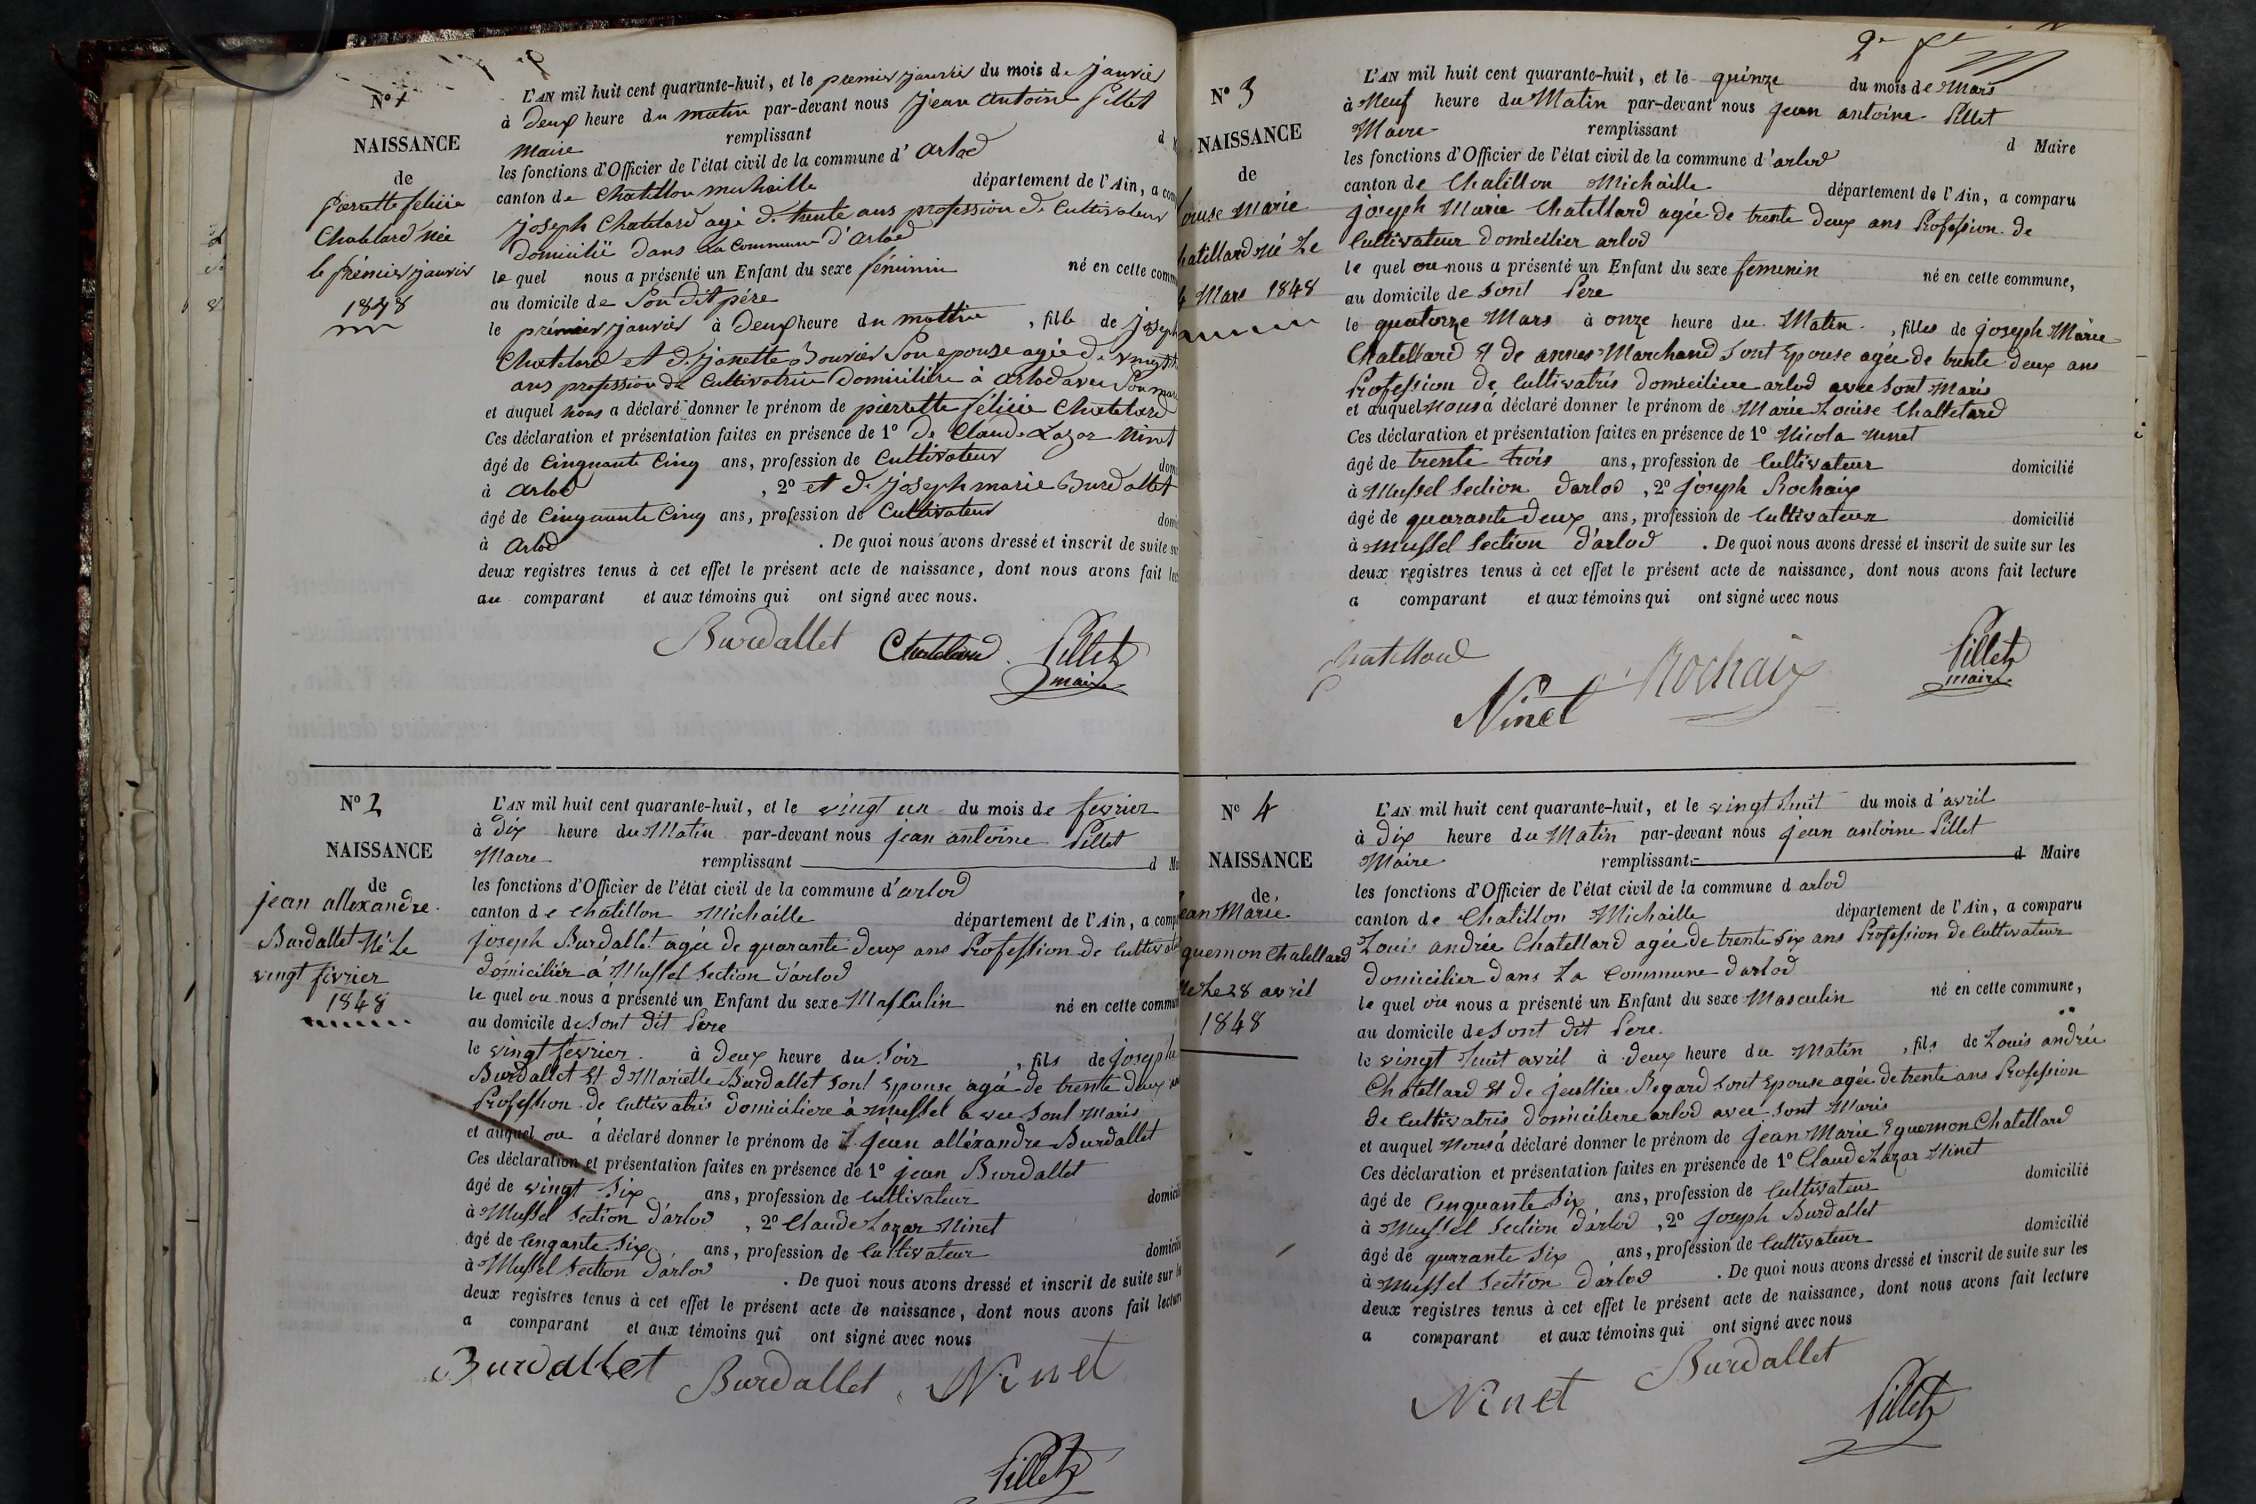 N° 1
NAISSANCE
de
pierrette felicie
Chatelard née
le prémier janvier
1848
L'AN mil huit cent quarante-huit, et le premier janvier du mois de janvier
à deux heure du matin par-devant nous jean antoine Pillet
maire remplissant d
les fonctions d'Officier de l'état civil de la commune d' arlod
canton de Chatillon michaille département de l'Ain, a com
joseph Chatelard agé de trente ans profession de Cultivateur
domicilié dans la Commune d'arlod
le quel nous a présenté un Enfant du sexe féminin né en cette comm
au domicile de Son dit pére
le prémier janvier à deux heure du mattin , fille de joseph
Chatelard et de janette Bouvier Son epouse agée de vingt
ans profession de Cultivatrice domicilière à arlod avec Son mari
et auquel nous a déclaré donner le prénom de pierrette félicie Chatelard
Ces déclaration et présentation faites en présence de 1° de Claude Lazar Ninet
âgé de Cinquante Cinq ans, profession de Cultivateur dom
à arlod , 2° et de joseph marie Burdallet
âgé de Cinquante Cinq ans, profession de Cultivateur domi
à arlod . De quoi nous avons dressé et inscrit de suite su
deux registres tenus à cet effet le présent acte de naissance, dont nous avons fait lec
au comparant et aux témoins qui ont signé avec nous.
Burdallet Chatelard Pillet
maire
N° 2
NAISSANCE
de
jean allexandre
Burdallet Né Le
vingt février
1848
L'AN mil huit cent quarante-huit, et le vingt un du mois de fevrier
à dix heure du Matin par-devant nous jean antoine Pillet
Maire remplissant d M
les fonctions d'Officier de l'état civil de la commune d'arlod
canton de Chatillon Michaille département de l'Ain, a comp
joseph Burdallet agée de quarante deux ans Profession de Cultivat
domiciliér à Mussel Section d'arlod
le quel ou nous a présenté un Enfant du sexe Masculin né en cette commun
au domicile de Sont dit Pere
le vingt fevrier à deux heure du Soir , fils de joseph
Burdallet Et d Mariette Burdallet Sont Epouse agé de trente deux
Profession de Cultivatris domiciliere à Mussel avec Sont Maris
et auquel ou a déclaré donner le prénom de jean alléxandre Burdallet
Ces déclaration et présentation faites en présence de 1° jean Burdallet
âgé de vingt Six ans, profession de Cultivateur domicili
à Mussel Section d'arlod , 2° Claude Lazar Ninet
âgé de Cenqante Six ans, profession de Cultivateur domicili
à Mussel Section d'arlod . De quoi nous avons dressé et inscrit de suite sur
deux registres tenus à cet effet le présent acte de naissance, dont nous avons fait lecture
a comparant et aux témoins qui ont signé avec nous
Burdallet Burdallet Ninet
Pillet
2e
N° 3
NAISSANCE
de
ouise Marie
hatellard né Le
Mars 1848
L'AN mil huit cent quarante-huit, et le quinze du mois de Mars
à Neuf heure du Matin par-devant nous jean antoine Pillet
Maire remplissant d Maire
les fonctions d'Officier de l'état civil de la commune d'arlod
canton de Chatillon Michaille département de l'Ain, a comparu
joseph Marie Chatellard agée de trente deux ans Profession de
Cultivateur domicilier arlod
le quel ou nous a présenté un Enfant du sexe femenin né en cette commune,
au domicile de Sont Pere
le quatorze Mars à onze heure du Matin , filles de joseph Marie
Chatellard Et de annes Marchand Sont Epouse agée de trente deux ans
Profession de Cultivatris domiciliere arlod avec Sont Maris
et auquel Nous a déclaré donner le prénom de Marie Louise Chattelard
Ces déclaration et présentation faites en présence de 1° Nicola Ninet
âgé de trente trois ans, profession de Cultivateur domicilié
à Mussel Section Darlod , 2° joseph Rochaix
âgé de quarante deux ans, profession de Cultivateur domicilié
à Mussel Section d'arlod . De quoi nous avons dressé et inscrit de suite sur les
deux registres tenus à cet effet le présent acte de naissance, dont nous avons fait lecture
a comparant et aux témoins qui ont signé avec nous
Chatellard Ninet Rochaix Pillet
maire
N° 4
NAISSANCE
de
ean Marie
guemon Chatellard
Le 28 avril
1848
L'AN mil huit cent quarante-huit, et le vingt huit du mois d'avril
à dix heure du Matin par-devant nous jean antoine Pillet
Maire remplissant d Maire
les fonctions d'Officier de l'état civil de la commune d arlod
canton de Chatillon Michaille département de l'Ain, a comparu
Louis andrée Chatellard agée de trente Six ans Profession de Cultivateur
domicilier dans La Commune Darlod
le quel ou nous a présenté un Enfant du sexe Masculin né en cette commune,
au domicile de Sont dit Pere
le vingt huit avril à deux heure du Matin , fils de Louis andrée
Chatellard Et de Regard Sont Epouse agée de trente ans Profession
de Cultivatris domiciliere arlod avec Sont Maris
et auquel Nous a déclaré donner le prénom de jean Marie Eguemon Chatellard
Ces déclaration et présentation faites en présence de 1° Claude Lazar Ninet
âgé de Cenquante Six ans, profession de Cultivateur domicilié
à Mussel Section d'arlod , 2° joseph Burdallet
âgé de quarrante Six ans, profession de Cultivateur domicilié
à Mussel Section d'arlod . De quoi nous avons dressé et inscrit de suite sur les
deux registres tenus à cet effet le présent acte de naissance, dont nous avons fait lecture
a comparant et aux témoins qui ont signé avec nous
Ninet Burdallet Pillet